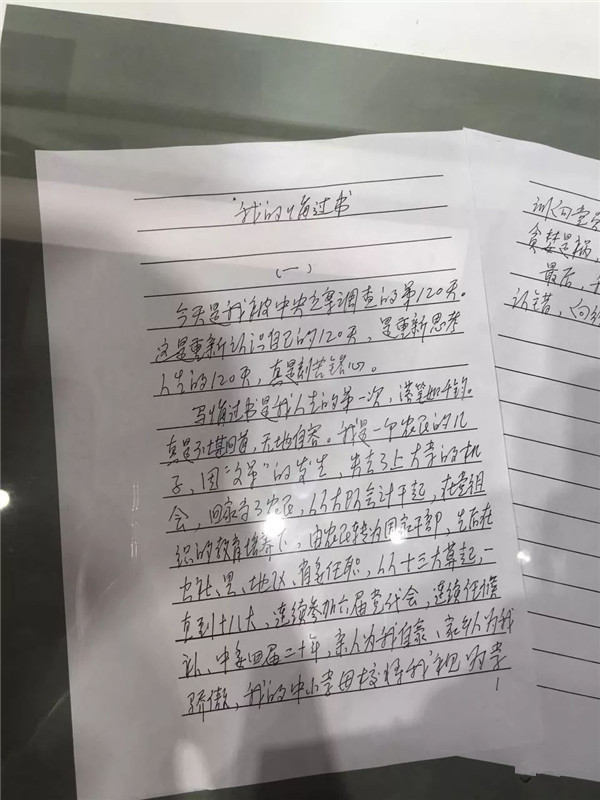 我的悔过书
（一）
今天是我被中央立案调查的第120天。
这是重新认识自己的120天，是重新思考
人生的120天，真是刻苦铭心。
写悔过书是我人生的第一次，落笔如千钧。
真是不堪回首，无地自容。我是一个农民的儿
子，因"文革"的发生，失去了上大学的机
会，回家当了农民，从大队会计干起，在党组
织的教育培养下，由农民转为国家干部，先后在
公社、县、地区、省委任职，从十三大算起，一
直到十八大，连续参加六届党代会，连续任候
补、中委四届二十年，亲人为我自豪、家乡人为我
骄傲，我的中小学母校将我视为学
1
训向党
贪婪是祸，
最后，
认错，向